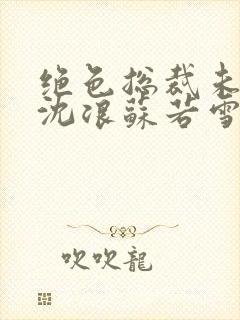 绝色总裁未
沈浪苏若雪
吹吹龍